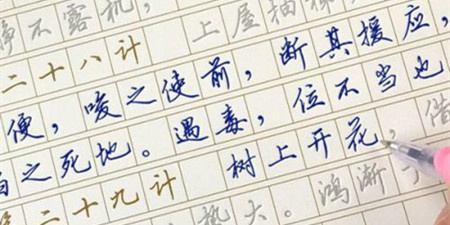 不露机，上屋抽梯
二十八计
便，唆之使前，断其援应，
之死地。遇毒，位不当也
二十九计 树上开花，借
势大。鸿渐于